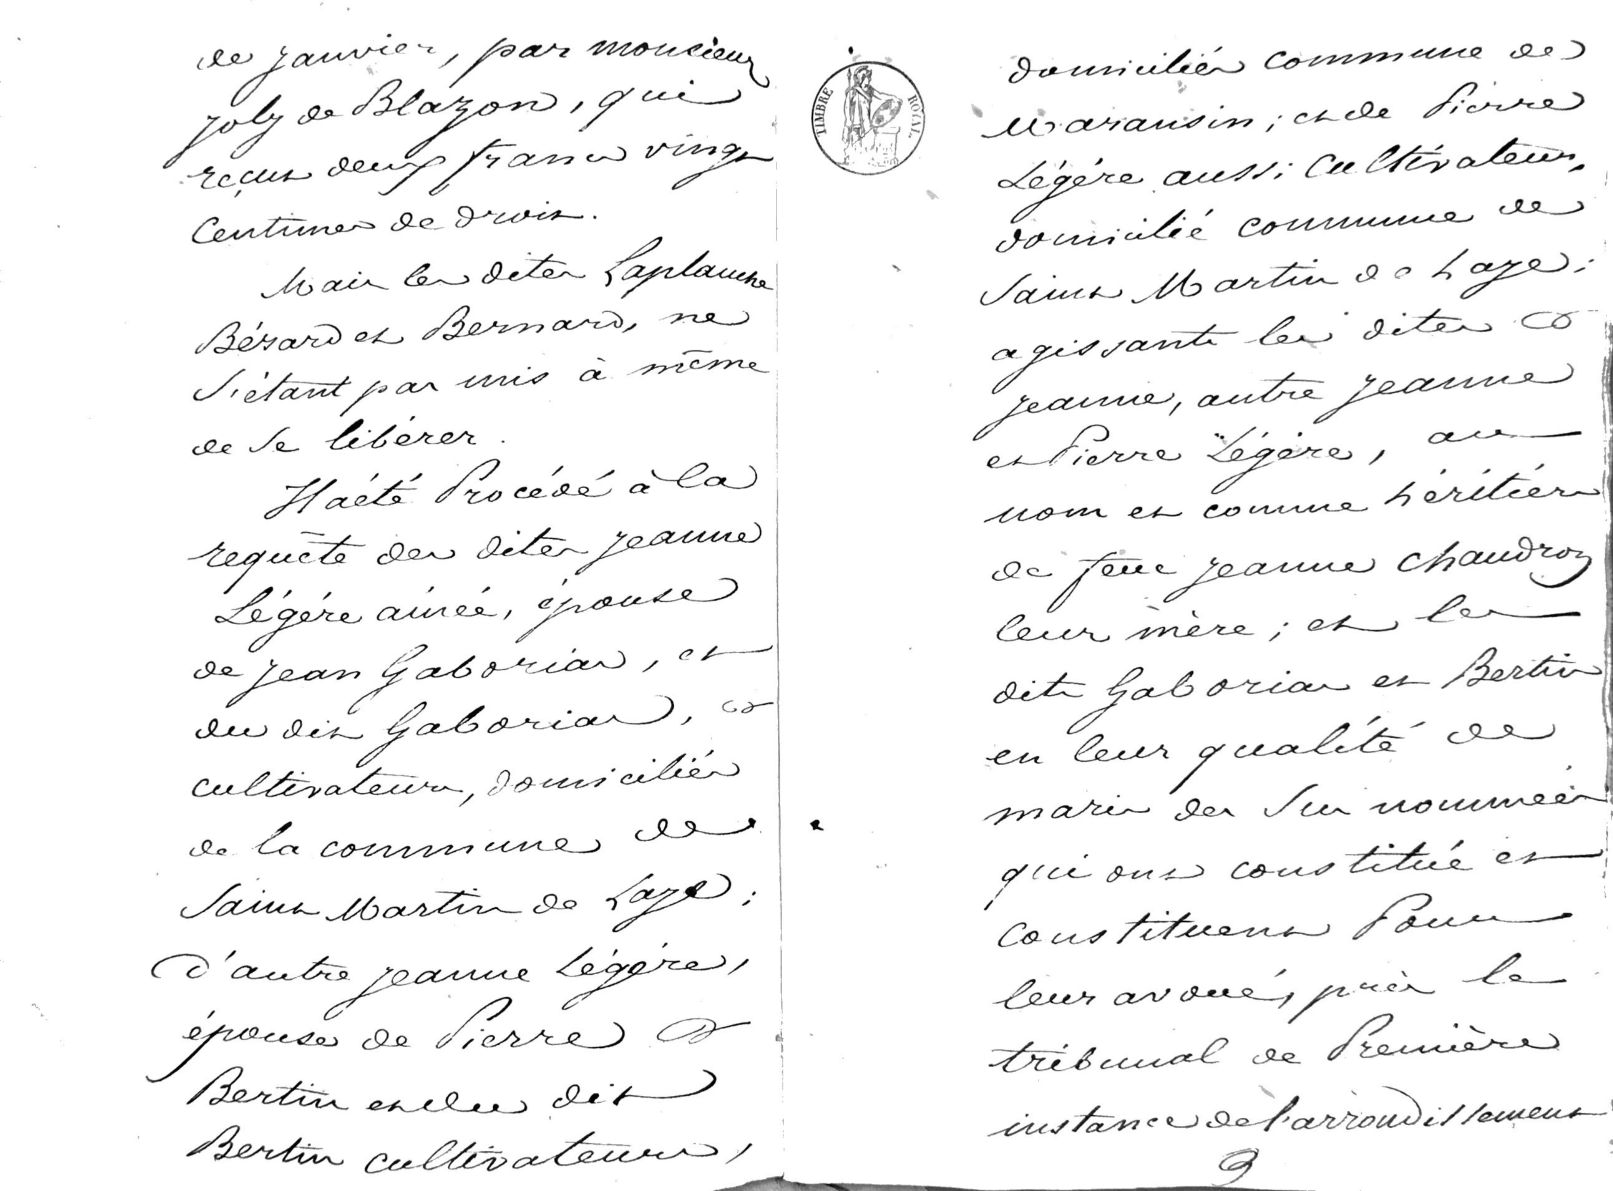 de janvier, par monsieur
joly de Blazon, qui
reçut deux francs vingt
Centimes de droit.
Mais les dites Laplanche
Bézard et Bernard, ne
S'étant pas mis à même
de Se libérer.
Il a été Procédé à la
requête des dites jeanne
Légére ainée, épouse
de jean Gaboriau, et
du dit Gaboriau,
cultivateurs, domiciliés
de la commune de
Saint Martin de Laye;
d'autre jeanne Légére,
épouse de Pierre
Bertin et du dit
Bertin cultivateurs,
TIMBRE ROYAL
domiciliés commune de
Maransin; et de Pierre
Légére aussi Cultivateur,
domicilié commune de
Saint Martin de Laye;
agissants les dites
jeanne, autre jeanne
et Pierre Légére, au
nom et comme héritiers
de feue jeanne Chaudron
leur mère; et les
dits Gaboriau et Bertin
en leur qualité de
maris des Sus nommées
qui ont constitué et
constituent Pour
leur avoué, près le
tribunal de Première
instance de l'arrondissement